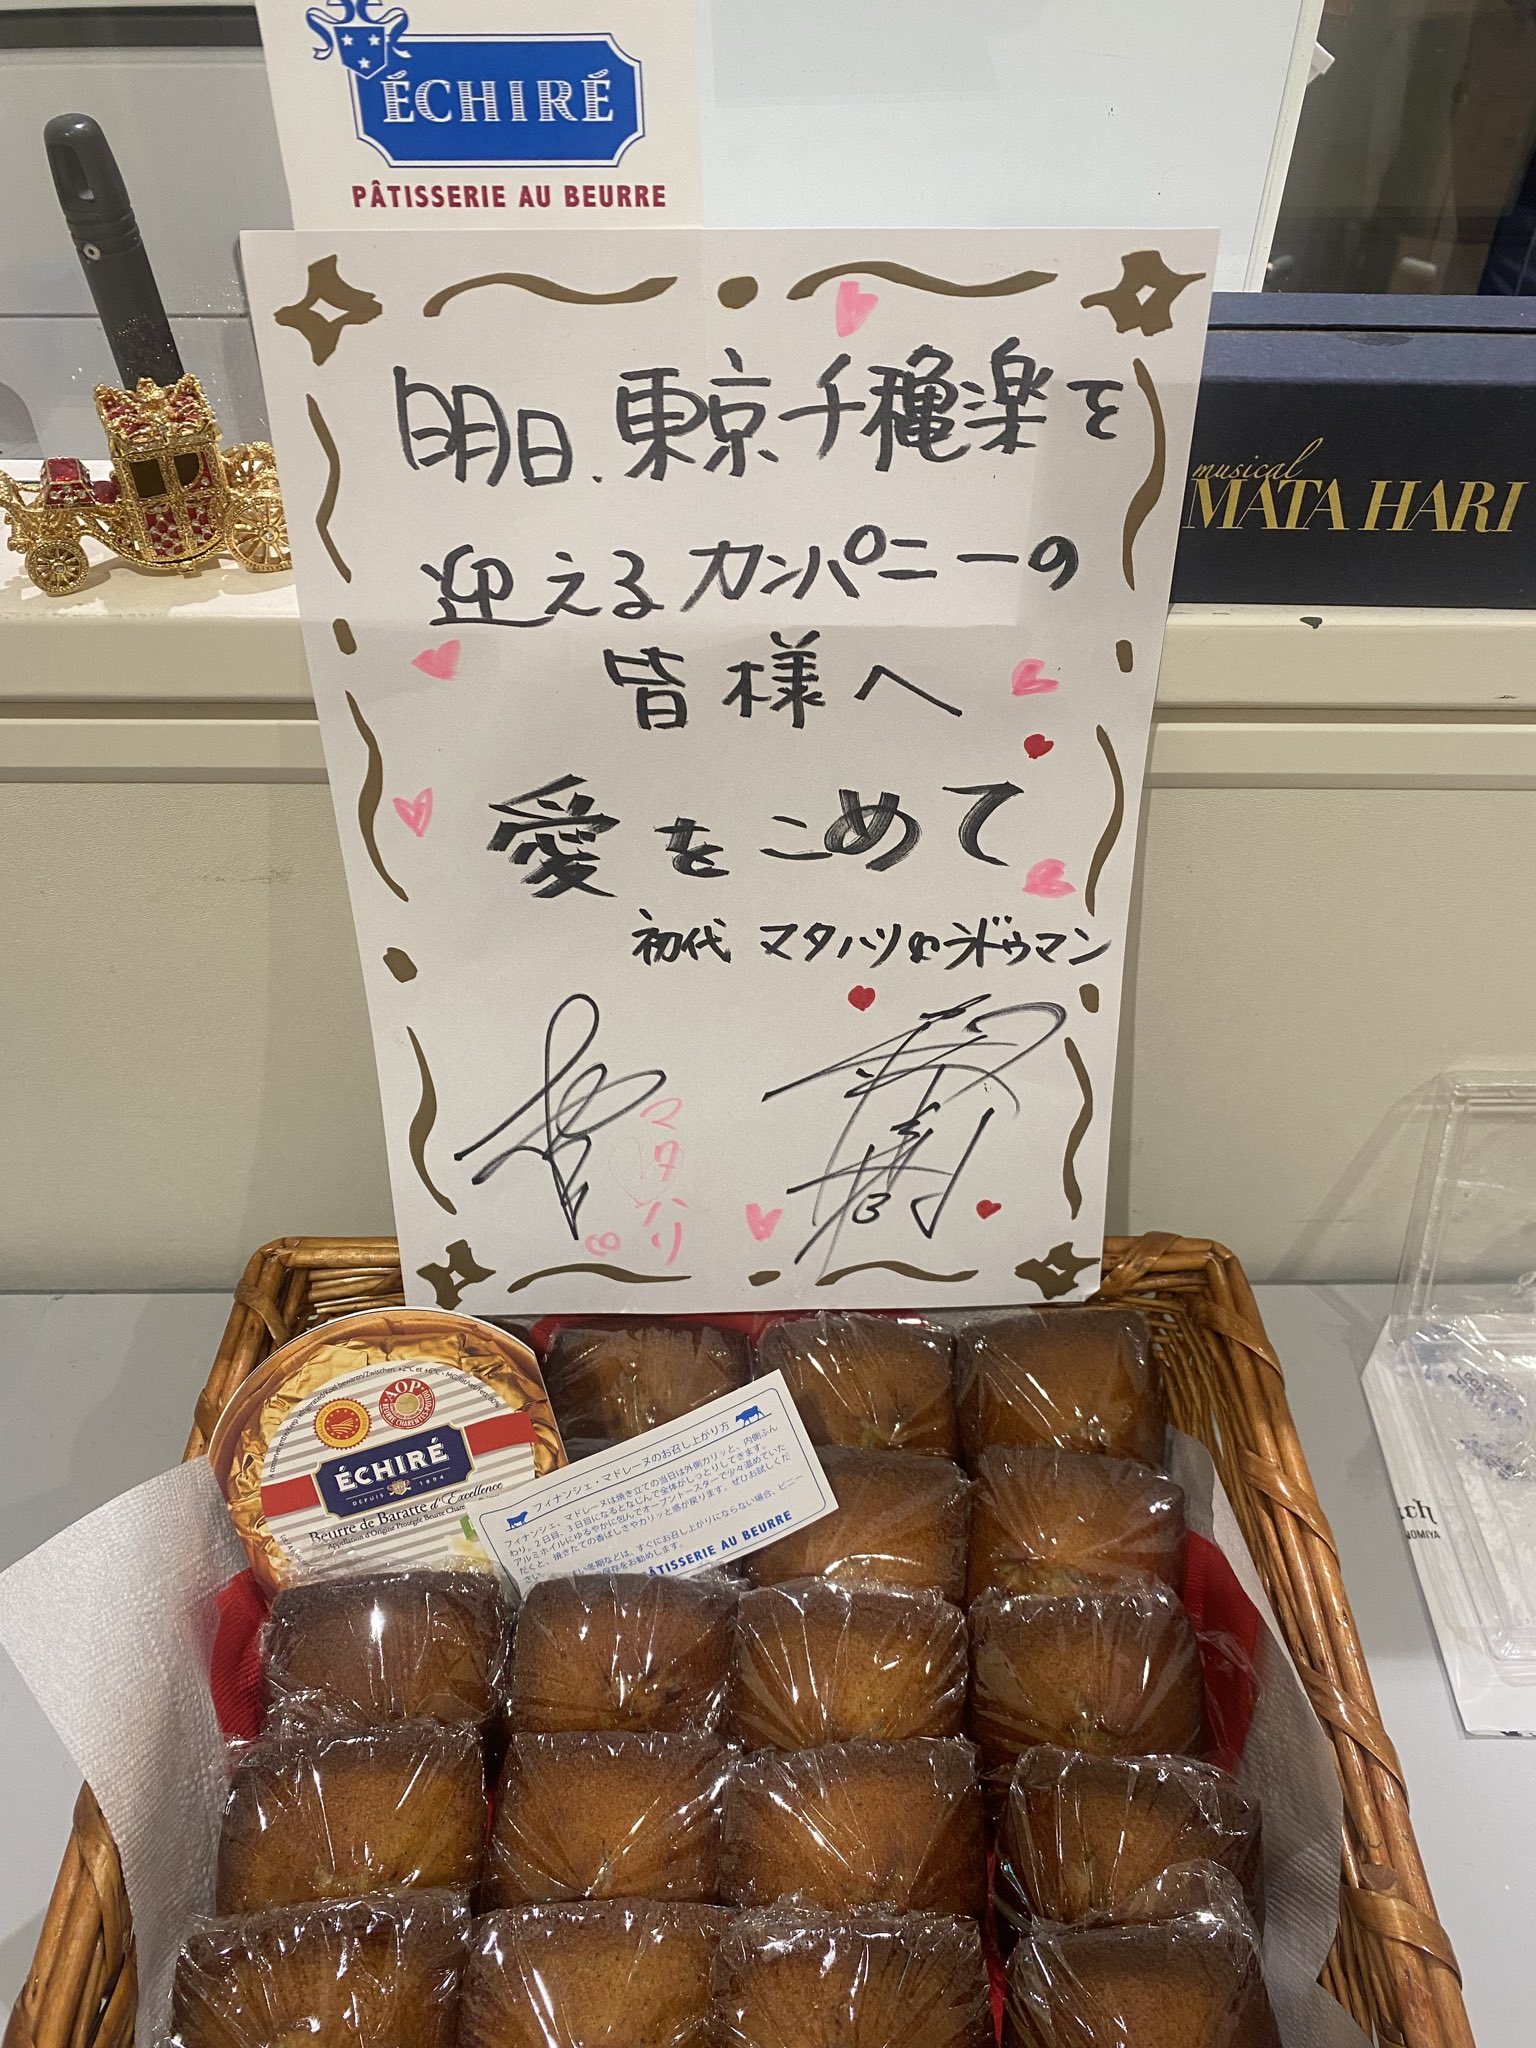 ÉCHIRÉ
PÂTISSERIE AU BEURRE
明日、東京千穐楽を
迎えるカンパニーの
皆様へ
愛をこめて
初代 マタハリ&ラドゥマン
マタハリ
musical
MATA HARI
AOP
ÉCHIRÉ
DEPUIS 1894
Beurre de Baratte d'Excellence
フィナンシェ・マドレーヌのお召し上がり方
フィナンシェ、マドレーヌは焼き立ての当日は外側カリッと、内側ふん
わり。2日目、3日目になるとなじんで全体がしっとりしてきます。
アルミホイルにゆるやかに包んでオーブントースターで少々温めていた
だくと、焼きたての香ばしさやカリッと感が戻ります。ぜひお試しくだ
さい。
冬期などは、すぐにお召し上がりにならない場合、ビニー
保存をお勧めします。
PÂTISSERIE AU BEURRE
NOMIYA